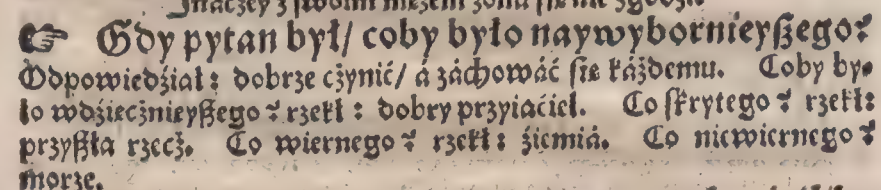 Ináczey z swoim mężem żoná się nie zgodzi.
☞ Gdy pytan był/ coby było naywybornieyßego?
Odpowiedźiał: dobrze cżynić/ á záchowáć się káżdemu. Coby by-
ło wdźięcżnieyßego? rzekł: dobry przyiaćiel. Co skrytego? rzekł:
przyßła rzecż. Co wiernego? rzekł: źiemiá. Co niewiernego?
morze.